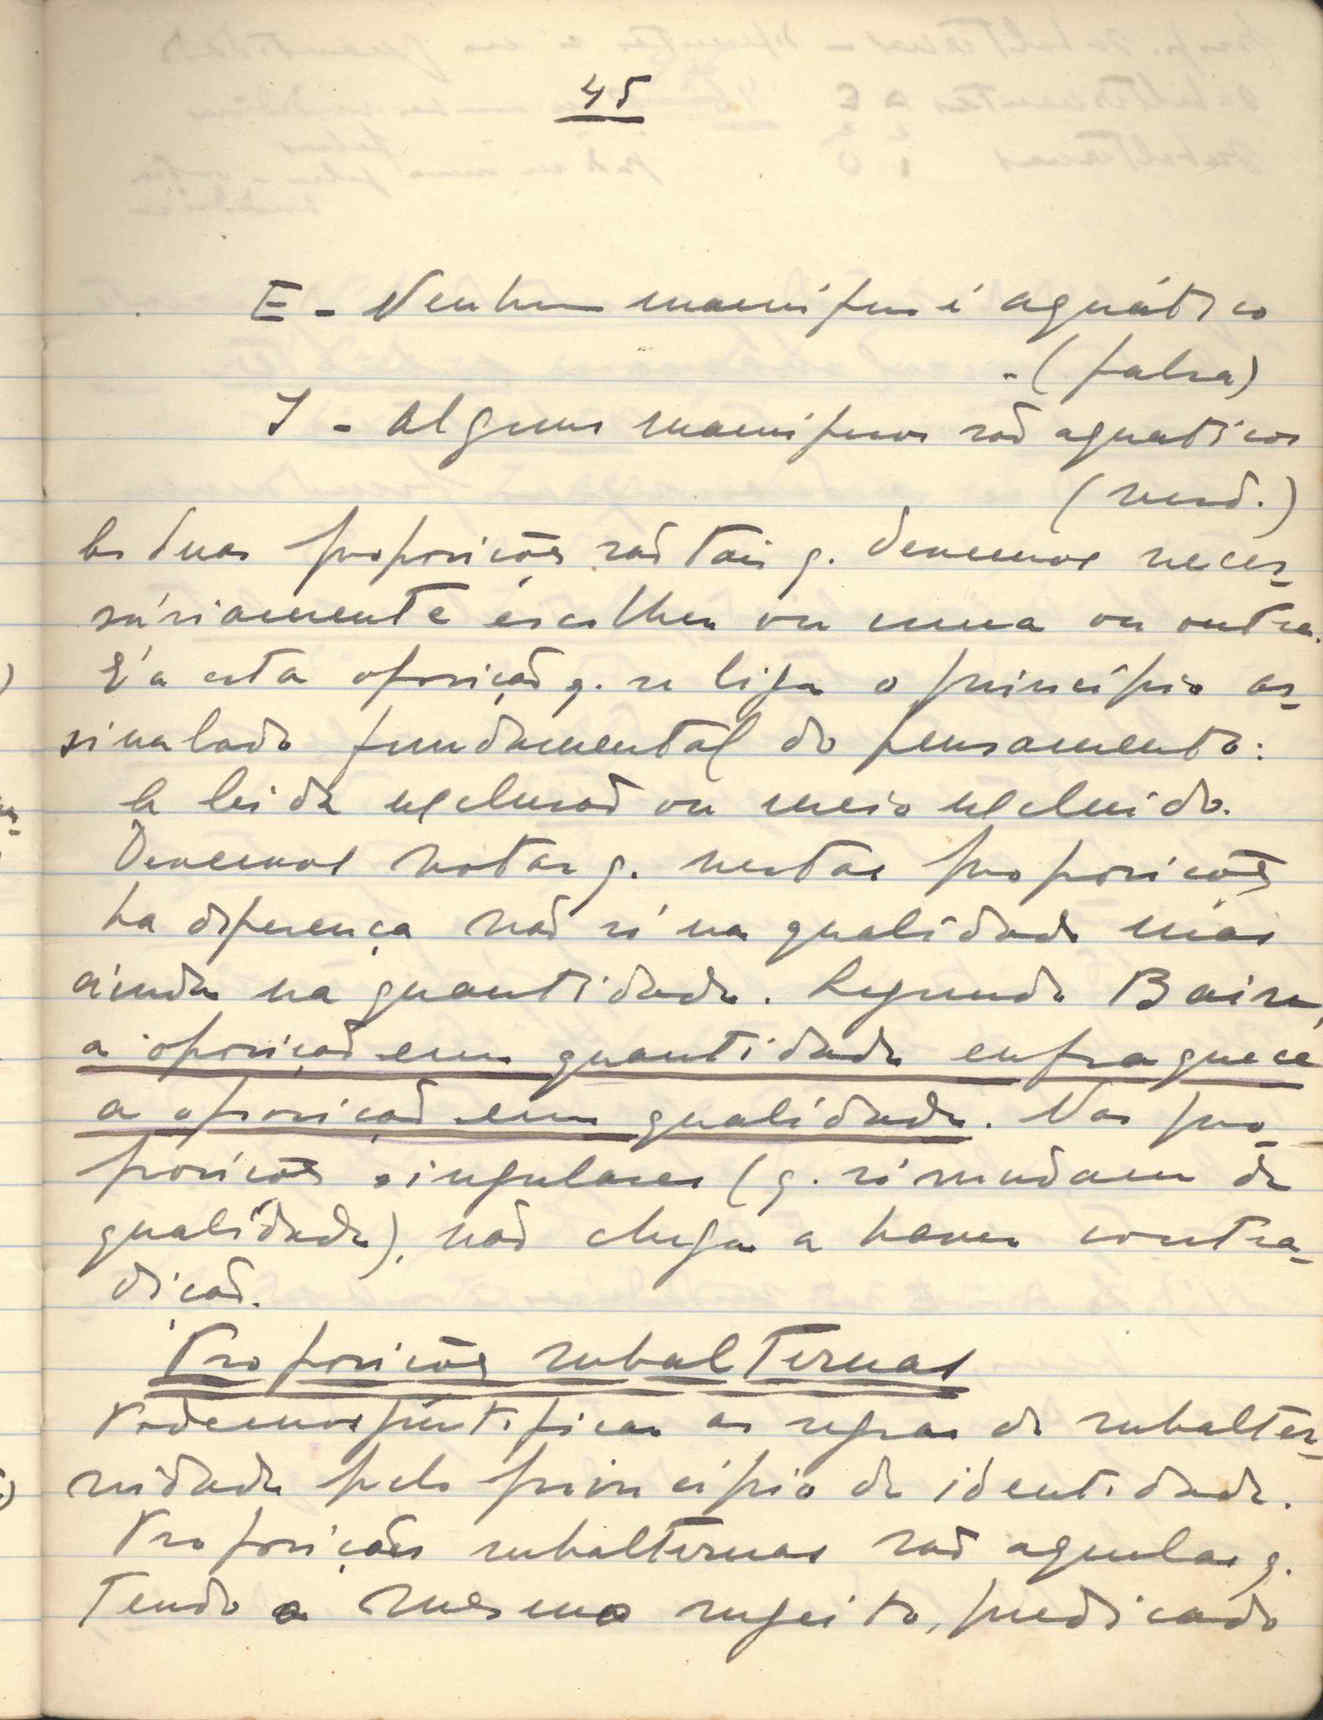 45
E - Nenhum mamifero é aquático
- (falsa)
I - Alguns mamiferos são aquaticos
(verd.)
As duas proposições são tais q. devemos neces-
sáriamente escolher ou uma ou outra.
E' a esta oposição q. se liga o princípio as-
sinalado fundamental do pensamento:
A lei da exclusão ou meio excluido.
Devemos notar q. nestas proposições
ha diferença não só na qualidade mas
ainda na quantidade. Segundo Bain,
a oposição em quantidade enfraquece
a oposição em qualidade. Nas pro-
posições singulares (q. só mudam de
qualidade), não chega a haver contra-
dição.
Proposições subalternas
Podemos justificar as regras de subalter-
nidade pelo princípio de identidade.
Proposições subalternas são aquelas q.
tendo o mesmo sujeito, predicado